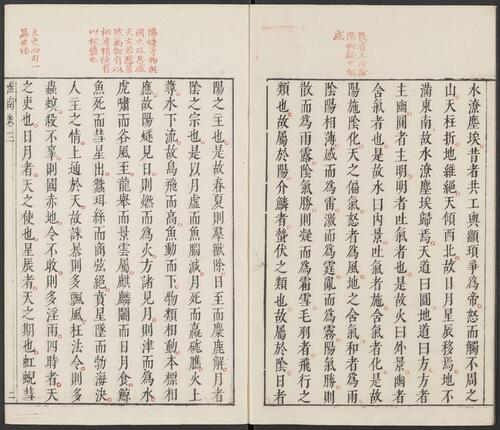 感
水潦塵埃昔者共工與顓頊爭爲帝怒而觸不周之
山天柱折地維絕天傾西北故日月星辰移焉地不
滿東南故水潦塵埃歸焉天道曰圓地道曰方方者
主幽圓者主明明者吐氣者也是故火曰外景幽者
含氣者也是故水曰內景吐氣者施含氣者化是故
陽施陰化天之偏氣怒者爲風地之含氣和者爲雨
陰陽相薄感而爲雷激而爲霆亂而爲霧陽氣勝則
散而爲雨露陰氣勝則凝而爲霜雪毛羽者飛行之
類也故屬於陽介鱗者蟄伏之類也故屬於陰日者
陽燧等物與
國之政其感
天文若應景
然萬物有以
相連精祲有
以相盪也
陽之主也是故春夏則羣獸除日至而麋鹿解月者
陰之宗也是以月虛而魚腦減月死而蠃蛖膲火上
蕁水下流故鳥飛而高魚動而下物類相動本標相
應故陽燧見日則燃而爲火方諸見月則津而爲水
虎嘯而谷風至龍舉而景雲屬麒麟鬭而日月食鯨
魚死而彗星出蠶珥絲而商弦絕賁星墜而勃海決
人主之情上通於天故誅暴則多飄風枉法令則多
蟲螟殺不辜則國赤地令不收則多淫雨四時者天
之吏也日月者天之使也星辰者天之期也虹蜺彗
淮南卷三
三